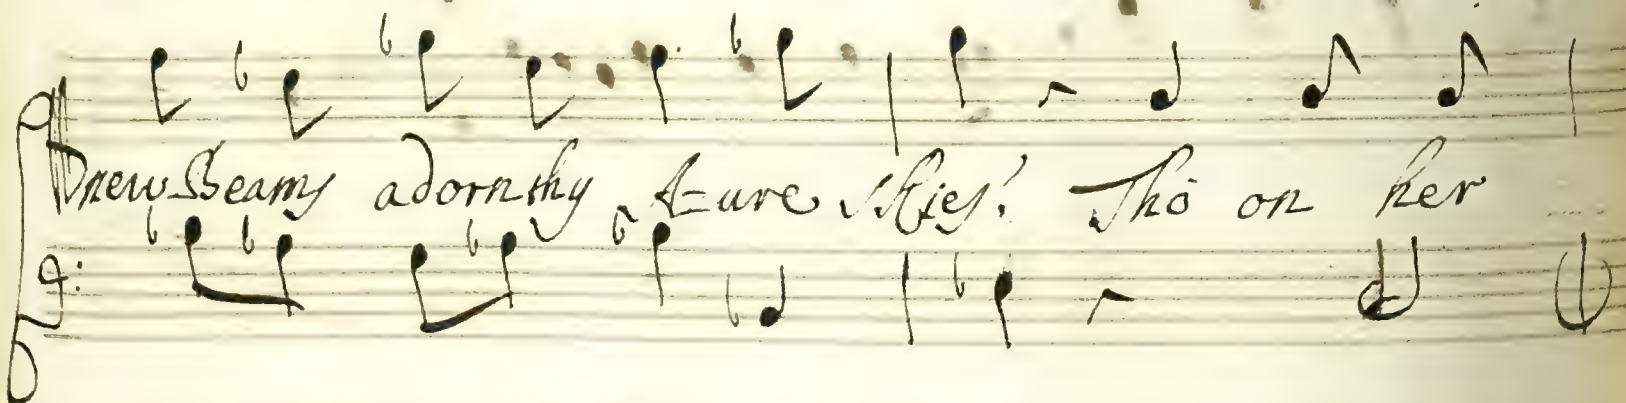 new Beams adorn thy A=ure Skies! Tho on her